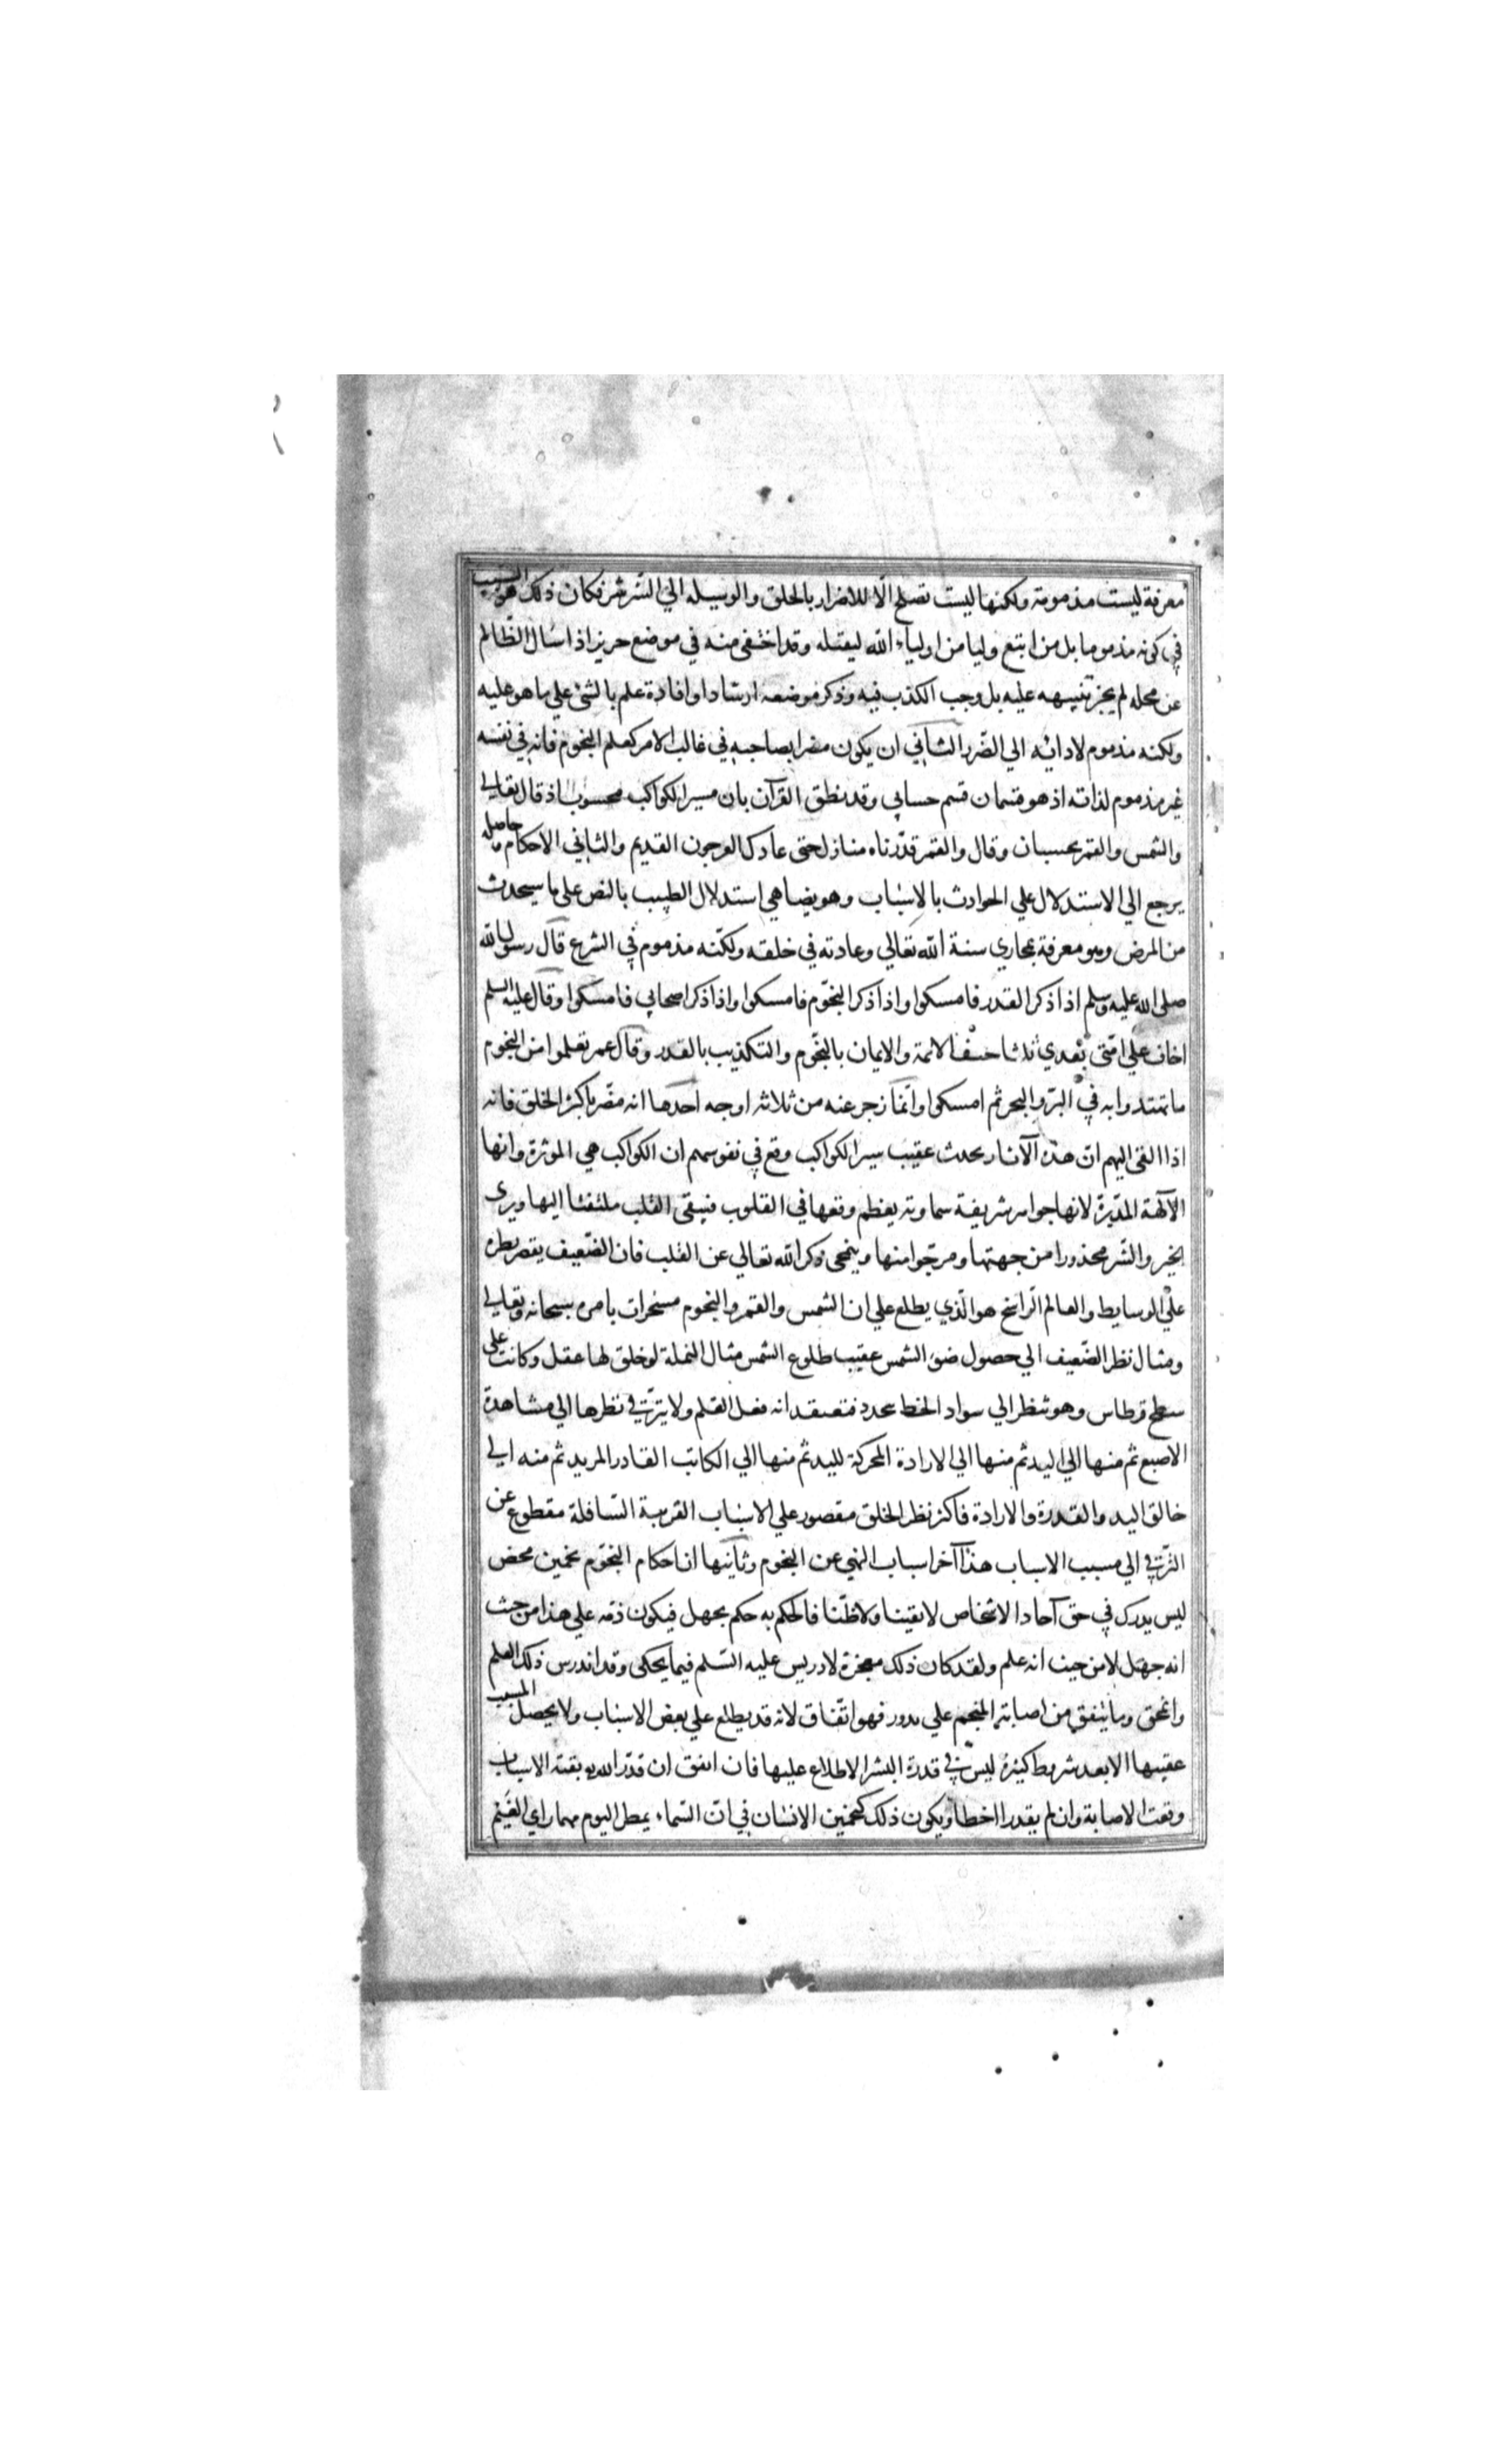 معرفة ليست مذمومة ولكنها ليست تصلح الّا للاضرار بالخلق والوسيله الي الشّر شر فكان ذلك هو السبب
في كونه مذموما بل من اتبع وليا من اولياء الله ليقتله وقد اختفى منه في موضع حريز اذا سال الظّالم
عن محله لم يجز تنبيهه عليه بل وجب الكذب فيه وذكر موضعه ارشادا وافادة علم بالشئ علي ما هو عليه
ولكنه مذموم لادائه الي الضّرر الثاني ان يكون مضرا بصاحبه في غالب الامر كعلم النجوم فانه في نفسه
غير مذموم لذاته اذ هو قسمان قسم حسابي وقد نطق القرآن بان مسير الكواكب محسوب اذ قال تعالي
والشمس والقمر بحسبان وقال والقمر قدّرناه منازل حتى عاد كالعرجون القديم والثاني الاحكام وحاصله
يرجع الي الاستدلال علي الحوادث بالاسباب وهو يضاهي استدلال الطبيب بالنبض على ما سيحدث
من المرض وهو معرفة بمجاري سنة الله تعالي وعادته في خلقه ولكنّه مذموم في الشرع قال رسول الله
صلى الله عليه وسلم اذا ذكر القدر فامسكوا واذا ذكر النجوم فامسكوا واذا ذكر اصحابي فامسكوا وقال عليه السلم
اخاف علي امّتى بعدي ثلاثا حيف الائمة والايمان بالنجوم والتكذيب بالقدر وقال عمر تعلموا من النجوم
ما تهتدوا به في البرّ والبحر ثم امسكوا وانّما زجر عنه من ثلاثة اوجه احدها انه مضّر باكثر الخلق فانه
اذا القى اليهم انّ هذه الآثار يحدث عقيب سير الكواكب وقع في نفوسهم ان الكواكب هي الموثرة وانها
الآلهة المدبّرة لانها جواهر شريفة سماوية يعظم وقعها في القلوب فيبقى القلب ملتفتا اليها ويرى
الخير والشّر محذورا من جهتها ومرجّوا منها وينمحى ذكر الله تعالي عن القلب فان الضّعيف يقصر نظره
علي الوسايط والعالم الراسخ هو الّذي يطلع علي ان الشمس والقمر والنجوم مسخرات بامره سبحانه وتعالي
ومثال نظر الضّعيف الي حصول ضوء الشمس عقيب طلوع الشمس مثال النملة لو خلق لها عقل وكانت على
سطح قرطاس وهو تنظر الي سواد الخط يتجدد فتعتقد انه فعل القلم ولا يترقي نظرها الي مشاهدة
الاصبع ثم منها الي اليد ثم منها الي الارادة المحركة لليد ثم منها الي الكاتب القادر المريد ثم منه الي
خالق اليد والقدرة والارادة فاكثر نظر الخلق مقصور علي الاسباب القريبة السّافلة مقطوع عن
الترّقي الي مسبب الاسباب هذا آخر اسباب النهي عن النجوم وثانيها ان احكام النجوم تخمين محض
ليس يدرك في حق آحاد الاشخاص لا يقينا ولا ظنّا فالحكم به حكم بجهل فيكون ذمّه علي هذا من حيث
انه جهل لا من حيث انه علم ولقد كان ذلك معجزة لادريس عليه السّلم فيما يحكى وقد اندرس ذلك العلم
وانمحق وما يتفق من اصابة المنجم علي ندور فهو اتّفاق لانه قد يطلع علي بعض الاسباب ولا يحصل المسبب
عقيبها الا بعد شروط كثيرة ليس في قدرة البشر الاطلاع عليها فان اتفق ان قدّر الله بقية الاسباب
وقعت الاصابة وان لم يقدر اخطا ويكون ذلك كتخمين الانسان في انّ السّماء يمطر اليوم مهما راي الغيم